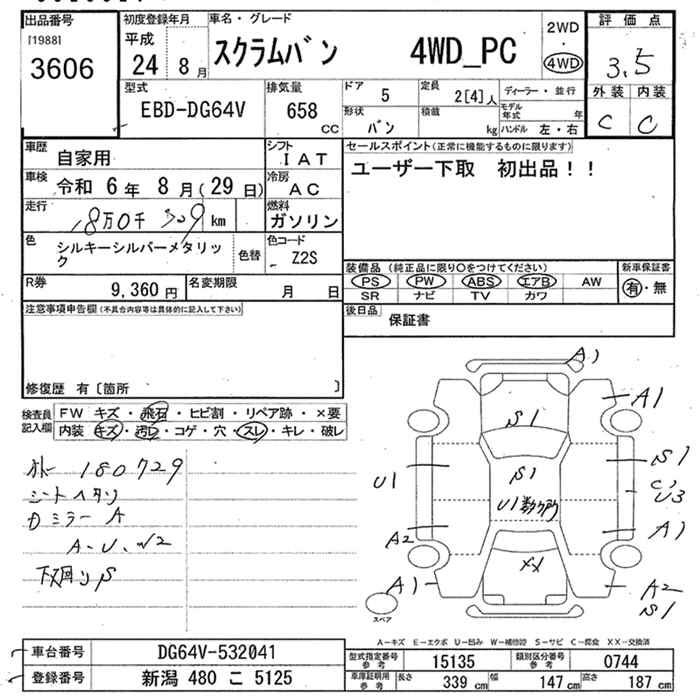 出品番号 初度登録年月 車名・グレード 2WD 評価点
[1988] 平成 スクラムバン 4WD_PC ・ 3.5
3606 24年 8月 4WD 外装 内装
型式 排気量 ドア 5 定員 2[4]人 ディーラー・並行 C C
EBD-DG64V 658 cc 形状 バン 積載 kg モデル年式 年 ハンドル 左・右
車歴 自家用 シフト IAT セールスポイント(正常に機能するものに限ります)
車検 令和 6年 8月(29日) 冷房 AC ユーザー下取 初出品!!
走行 18万0千309km 燃料 ガソリン
色 シルキーシルバーメタリック 色替 色コード Z2S
装備品(純正品に限り○をつけてください) 新車保証書
R券 9,360円 名変期限 月 日 PS PW ABS エアB AW 有・無
SR ナビ TV カワ
注意事項申告欄(不具合内容等は具体的に記入して下さい) 後日品 保証書
修復歴 有〔箇所 〕
検査員記入欄 FW キズ・飛石・ヒビ割・リペア跡・×要
内装 キズ・汚レ・コゲ・穴・スレ・キレ・破レ
A1
A1
S1
180729
シートヘタリ
S1
S1
U1
C1
U3
U1数ヶ所
ミラー A
A2
A1
A.U.W2
下廻りS
XX
A1
A2
S1
スペア
A-キズ E-エクボ U-凹み W-補修跡 S-サビ C-腐食 XX-交換済
車台番号 DG64V-532041 型式指定番号参考 15135 類別区分番号参考 0744
登録番号 新潟 480 こ 5125 車庫証明用参考 長さ 339cm 幅 147cm 高さ 187cm